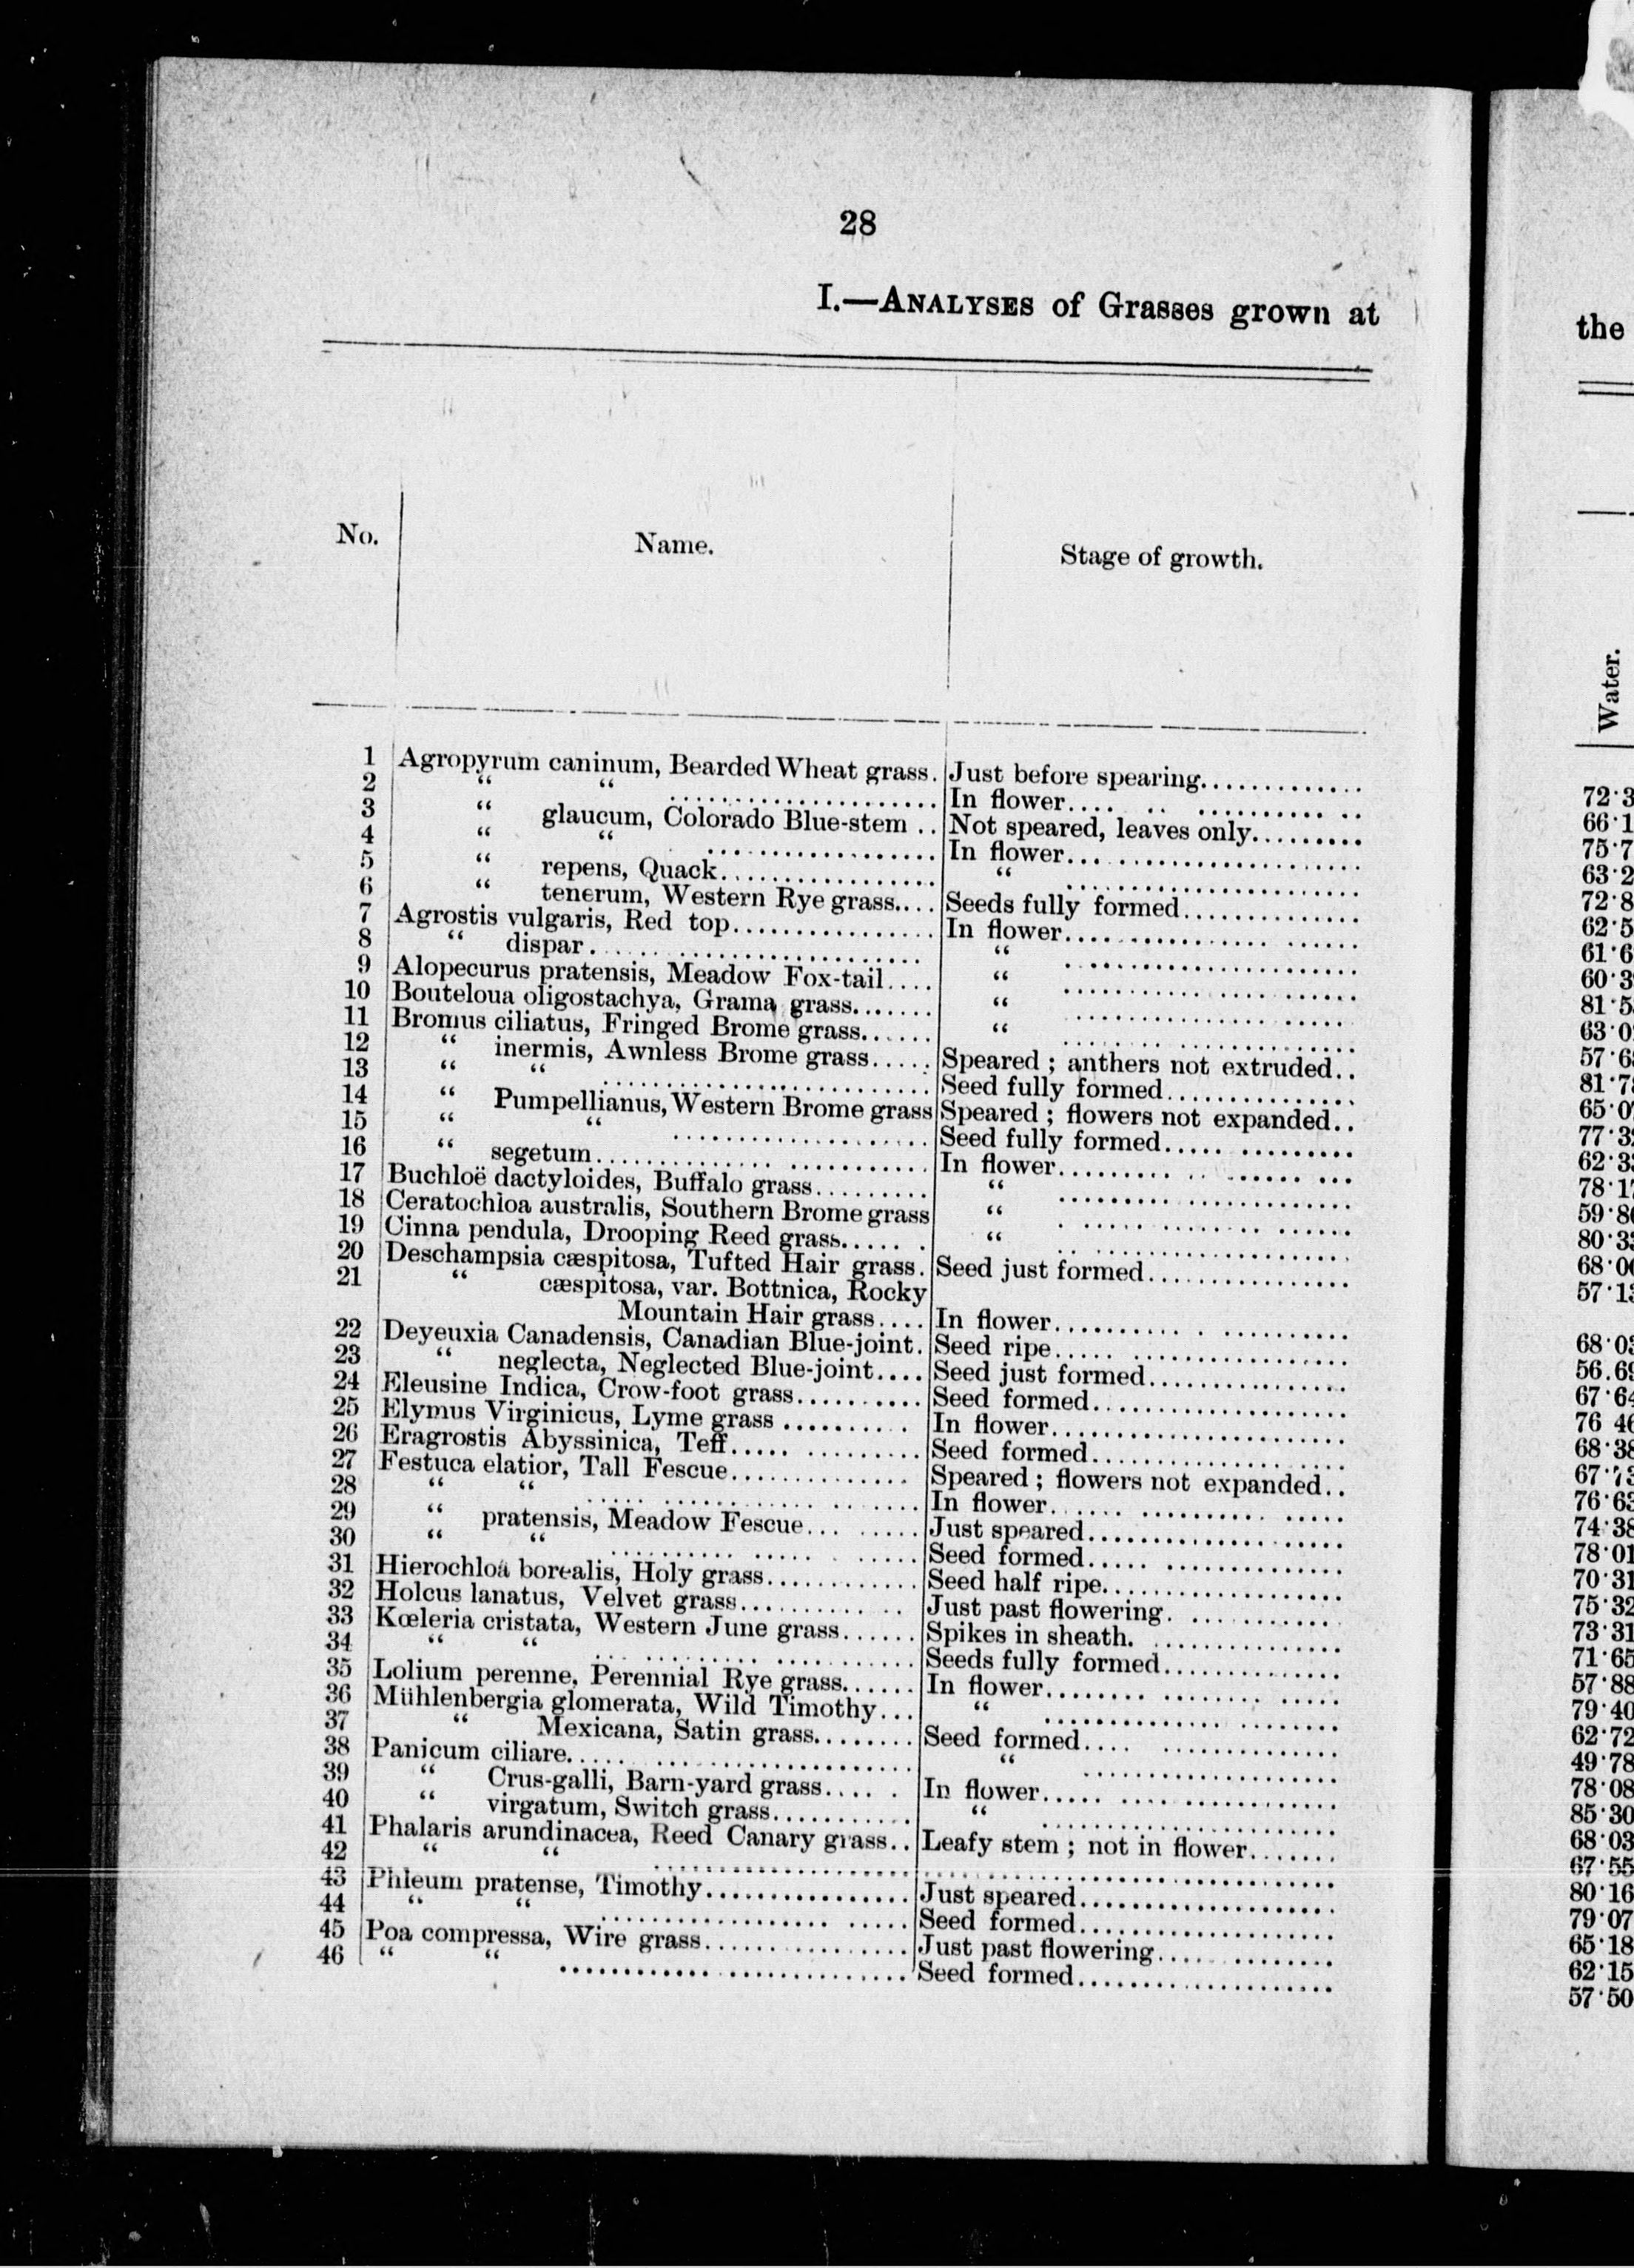 28
I.—ANALYSES of Grasses grown at
No. Name. Stage of growth.
1 Agropyrum caninum, Bearded Wheat grass. Just before spearing
2 “ “ In flower
3 “ glaucum, Colorado Blue-stem .. Not speared, leaves only
4 “ “ In flower
5 “ repens, Quack “
6 “ tenerum, Western Rye grass.... Seeds fully formed
7 Agrostis vulgaris, Red top In flower
8 “ dispar “
9 Alopecurus pratensis, Meadow Fox-tail.... “
10 Bouteloua oligostachya, Grama grass “
11 Bromus ciliatus, Fringed Brome grass “
12 “ inermis, Awnless Brome grass Speared ; anthers not extruded..
13 “ “ Seed fully formed
14 “ Pumpellianus, Western Brome grass Speared ; flowers not expanded..
15 “ “ Seed fully formed
16 “ segetum In flower
17 Buchloë dactyloides, Buffalo grass “
18 Ceratochloa australis, Southern Brome grass “
19 Cinna pendula, Drooping Reed grass “
20 Deschampsia cæspitosa, Tufted Hair grass. Seed just formed
21 “ cæspitosa, var. Bottnica, Rocky
Mountain Hair grass.... In flower
22 Deyeuxia Canadensis, Canadian Blue-joint. Seed ripe
23 “ neglecta, Neglected Blue-joint.... Seed just formed
24 Eleusine Indica, Crow-foot grass Seed formed
25 Elymus Virginicus, Lyme grass In flower
26 Eragrostis Abyssinica, Teff Seed formed
27 Festuca elatior, Tall Fescue Speared ; flowers not expanded..
28 “ “ In flower
29 “ pratensis, Meadow Fescue Just speared
30 “ “ Seed formed
31 Hierochloa borealis, Holy grass Seed half ripe
32 Holcus lanatus, Velvet grass Just past flowering
33 Kœleria cristata, Western June grass Spikes in sheath.
34 “ “ Seeds fully formed
35 Lolium perenne, Perennial Rye grass In flower
36 Mühlenbergia glomerata, Wild Timothy... “
37 “ Mexicana, Satin grass Seed formed
38 Panicum ciliare “
39 “ Crus-galli, Barn-yard grass In flower
40 “ virgatum, Switch grass “
41 Phalaris arundinacea, Reed Canary grass.. Leafy stem ; not in flower
42 “ “
43 Phleum pratense, Timothy Just speared
44 “ “ Seed formed
45 Poa compressa, Wire grass Just past flowering
46 “ “ Seed formed
the
Water.
72·3
66·1
75·7
63·2
72·8
62·5
61·6
60·3
81·5
63·0
57·6
81·7
65·0
77·3
62·3
78·1
59·8
80·3
68·0
57·1
68·0
56.69
67·64
76 46
68·38
67·73
76·63
74·38
78·01
70·31
75·32
73·31
71·65
57·88
79·40
62·72
49·78
78·08
85·30
68·03
67·55
80·16
79·07
65·18
62·15
57·50